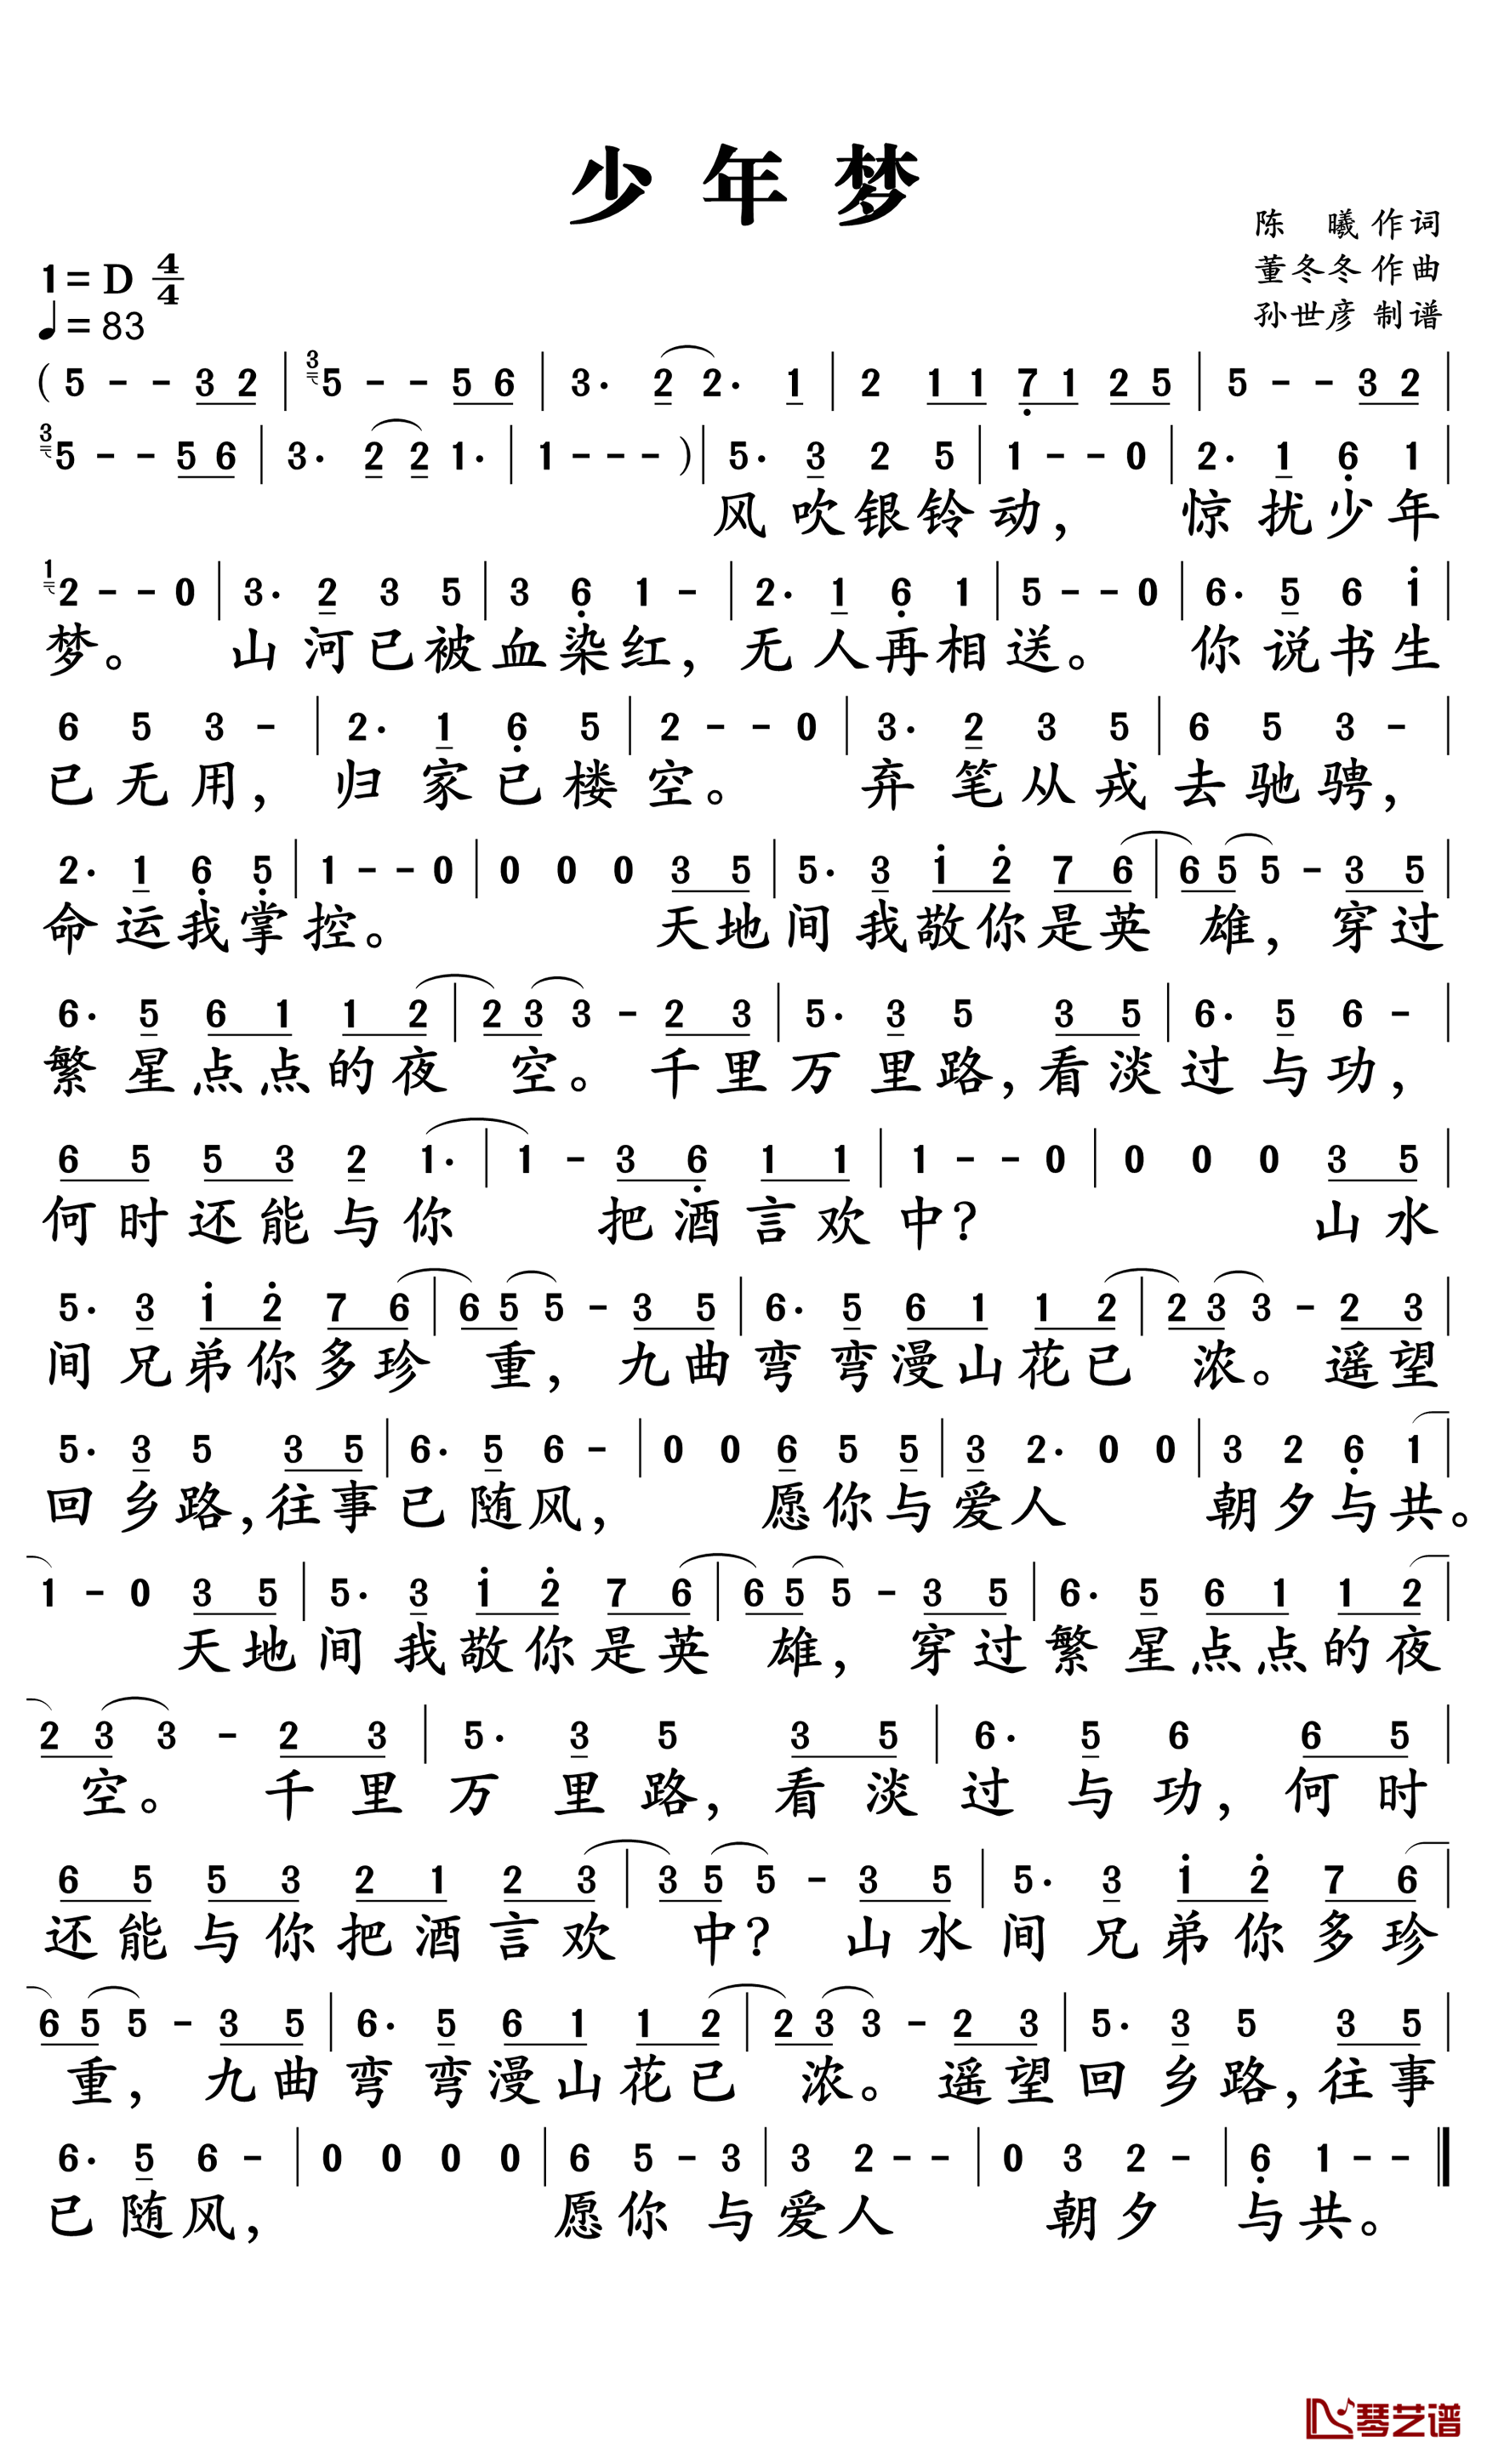 少年梦
陈 曦 作词
董冬冬 作曲
孙世彦 制谱
1=D 4/4
♩=83
( 5 - - 3 2 | 3 5 - - 5 6 | 3· 2 2· 1 | 2 1 1 7 1 2 5 | 5 - - 3 2 |
3 5 - - 5 6 | 3· 2 2 1· | 1 - - - ) | 5· 3 2 5 | 1 - - 0 | 2· 1 6 1 |
风吹银铃动， 惊扰少年
1 2 - - 0 | 3· 2 3 5 | 3 6 1 - | 2· 1 6 1 | 5 - - 0 | 6· 5 6 1 |
梦。 山河已被血染红，无人再相送。 你说书生
6 5 3 - | 2· 1 6 5 | 2 - - 0 | 3· 2 3 5 | 6 5 3 - |
已无用， 归家已楼空。 弃笔从戎去驰骋，
2· 1 6 5 | 1 - - 0 | 0 0 0 3 5 | 5· 3 1 2 7 6 | 6 5 5 - 3 5 |
命运我掌控。 天地间我敬你是英 雄，穿过
6· 5 6 1 1 2 | 2 3 3 - 2 3 | 5· 3 5 3 5 | 6· 5 6 - |
繁星点点的夜 空。千里万里路，看淡过与功，
6 5 5 3 2 1· | 1 - 3 6 1 1 | 1 - - 0 | 0 0 0 3 5 |
何时还能与你 把酒言欢中？ 山水
5· 3 1 2 7 6 | 6 5 5 - 3 5 | 6· 5 6 1 1 2 | 2 3 3 - 2 3 |
间兄弟你多珍 重，九曲弯弯漫山花已 浓。遥望
5· 3 5 3 5 | 6· 5 6 - | 0 0 6 5 5 | 3 2· 0 0 | 3 2 6 1 |
回乡路，往事已随风， 愿你与爱人 朝夕与共。
1 - 0 3 5 | 5· 3 1 2 7 6 | 6 5 5 - 3 5 | 6· 5 6 1 1 2 |
天地间我敬你是英 雄，穿过繁星点点的夜
2 3 3 - 2 3 | 5· 3 5 3 5 | 6· 5 6 6 5 |
空。 千里万里路，看淡过与功，何时
6 5 5 3 2 1 2 3 | 3 5 5 - 3 5 | 5· 3 1 2 7 6 |
还能与你把酒言欢 中？ 山水间兄弟你多珍
6 5 5 - 3 5 | 6· 5 6 1 1 2 | 2 3 3 - 2 3 | 5· 3 5 3 5 |
重，九曲弯弯漫山花已 浓。遥望回乡路，往事
6· 5 6 - | 0 0 0 0 | 6 5 - 3 | 3 2 - - | 0 3 2 - | 6 1 - - ‖
已随风， 愿你与爱人 朝夕 与共。
琴艺谱